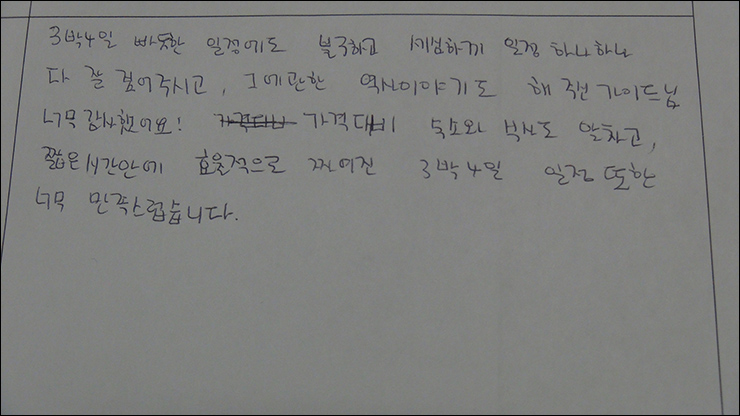 3박4일 빠듯한 일정에도 불구하고 세심하게 일정 하나하나
다 잘 짚어주시고, 그에관한 역사이야기도 해 주신 가이드님
너무 감사했어요! 가격대비 가격대비 숙소와 식사도 알차고,
짧은시간안에 효율적으로 짜여진 3박4일 일정 또한
너무 만족스럽습니다.